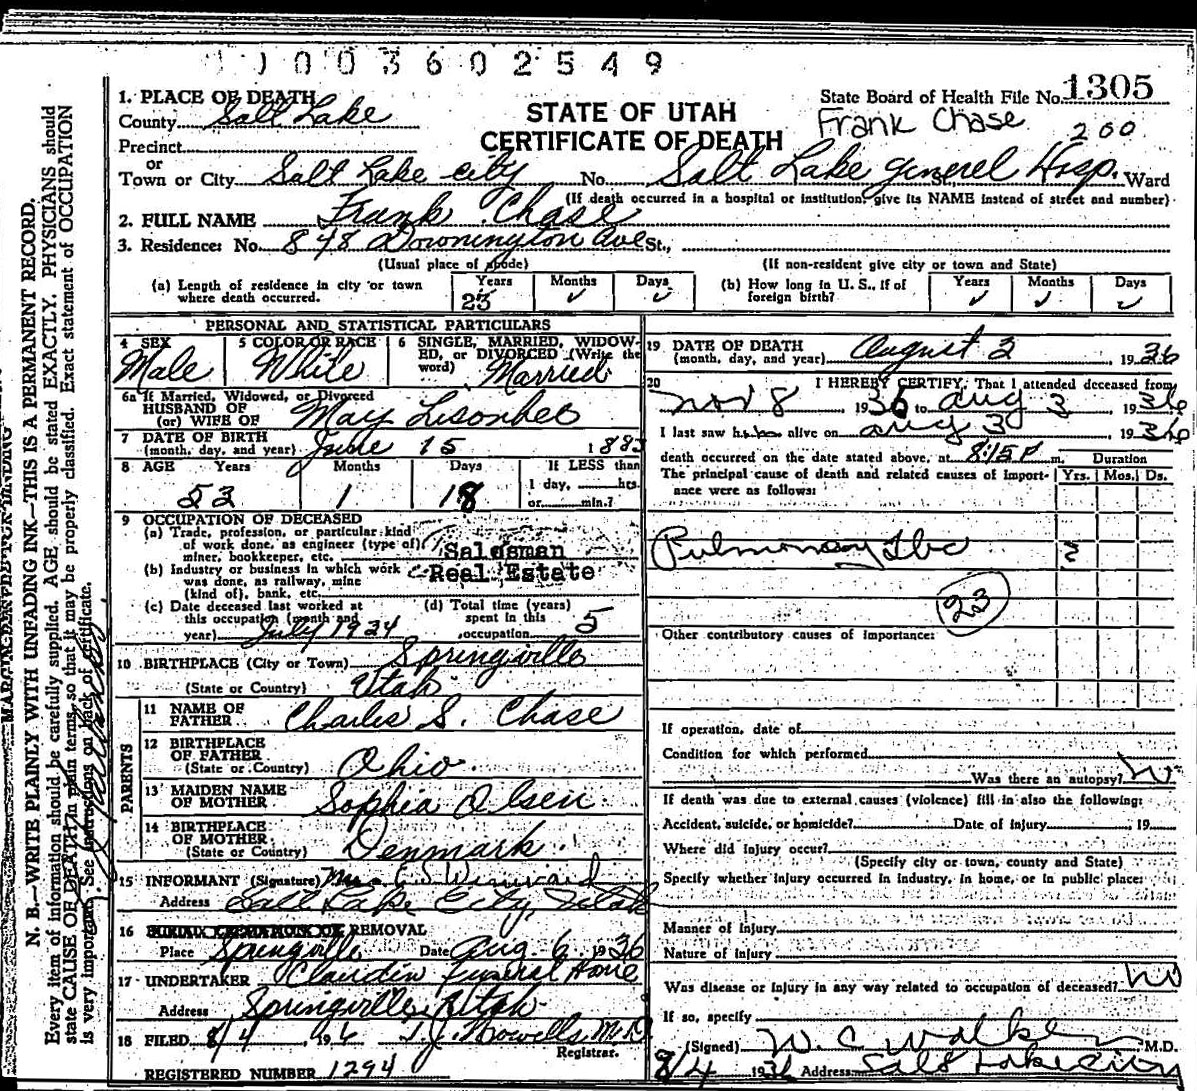 0 0 0 3 6 0 2 5 4 9
1. PLACE OF DEATH
County Salt Lake
Precinct
or
Town or City Salt Lake City No. Salt Lake General Hosp. St., Ward
STATE OF UTAH
CERTIFICATE OF DEATH
State Board of Health File No. 1305
Frank Chase 200
(If death occurred in a hospital or institution, give its NAME instead of street and number)
2. FULL NAME Frank Chase
3. Residence: No. 848 Downington Ave St.,
(Usual place of abode) (If non-resident give city or town and State)
(a) Length of residence in city or town where death occurred. Years 25 Months ✓ Days ✓
(b) How long in U. S., if of foreign birth? Years ✓ Months ✓ Days ✓
PERSONAL AND STATISTICAL PARTICULARS
4 SEX Male
5 COLOR OR RACE White
6 SINGLE, MARRIED, WIDOWED, or DIVORCED (Write the word) Married
6a If Married, Widowed, or Divorced
HUSBAND OF
(or) WIFE OF May Lisonbee
7 DATE OF BIRTH
(month, day, and year) June 15 1883
8 AGE Years 53 Months 1 Days 18
If LESS than
1 day, hrs.
or min.?
9 OCCUPATION OF DECEASED
(a) Trade, profession, or particular kind
of work done, as engineer (type of)
miner, bookkeeper, etc. Salesman
(b) Industry or business in which work
was done, as railway, mine
(kind of), bank, etc. Real Estate
(c) Date deceased last worked at
this occupation (month and
year) July 1934
(d) Total time (years)
spent in this
occupation 5
10 BIRTHPLACE (City or Town) Springville
(State or Country) Utah
PARENTS
11 NAME OF
FATHER Charles S. Chase
12 BIRTHPLACE
OF FATHER
(State or Country) Ohio
13 MAIDEN NAME
OF MOTHER Sophia Olsen
14 BIRTHPLACE
OF MOTHER
(State or Country) Denmark
15 INFORMANT (Signature) Mrs
Address Salt Lake City, Utah
16 REMOVAL
Place Springville Date Aug 6 1936
17 UNDERTAKER Claudin Funeral Home
Address Springville, Utah
18 FILED 8/4 1936 T. J. Howells M.D.
Registrar.
REGISTERED NUMBER 1294
19 DATE OF DEATH
(month, day, and year) August 3 1936
20 I HEREBY CERTIFY, That I attended deceased from
Nov 8 1936 to Aug 3 1936
I last saw h alive on Aug 3, 1936
death occurred on the date stated above, at 8:15 P m. Duration
The principal cause of death and related causes of importance were as follows: Yrs. Mos. Ds.
Pulmonary Tbc 2
23
Other contributory causes of importance:
If operation, date of
Condition for which performed
Was there an autopsy? No
If death was due to external causes (violence) fill in also the following:
Accident, suicide, or homicide? Date of injury , 19
Where did injury occur?
(Specify city or town, county and State)
Specify whether injury occurred in industry, in home, or in public place:
Manner of injury
Nature of injury
Was disease or injury in any way related to occupation of deceased? No
If so, specify
(Signed) W. C. Walker M.D.
8/4 1936 Address Salt Lake City
N. B.—WRITE PLAINLY WITH UNFADING INK—THIS IS A PERMANENT RECORD.
Every item of information should be carefully supplied. AGE should be stated EXACTLY. PHYSICIANS should
state CAUSE OF DEATH in plain terms, so that it may be properly classified. Exact statement of OCCUPATION
is very important. See instructions on back of certificate.